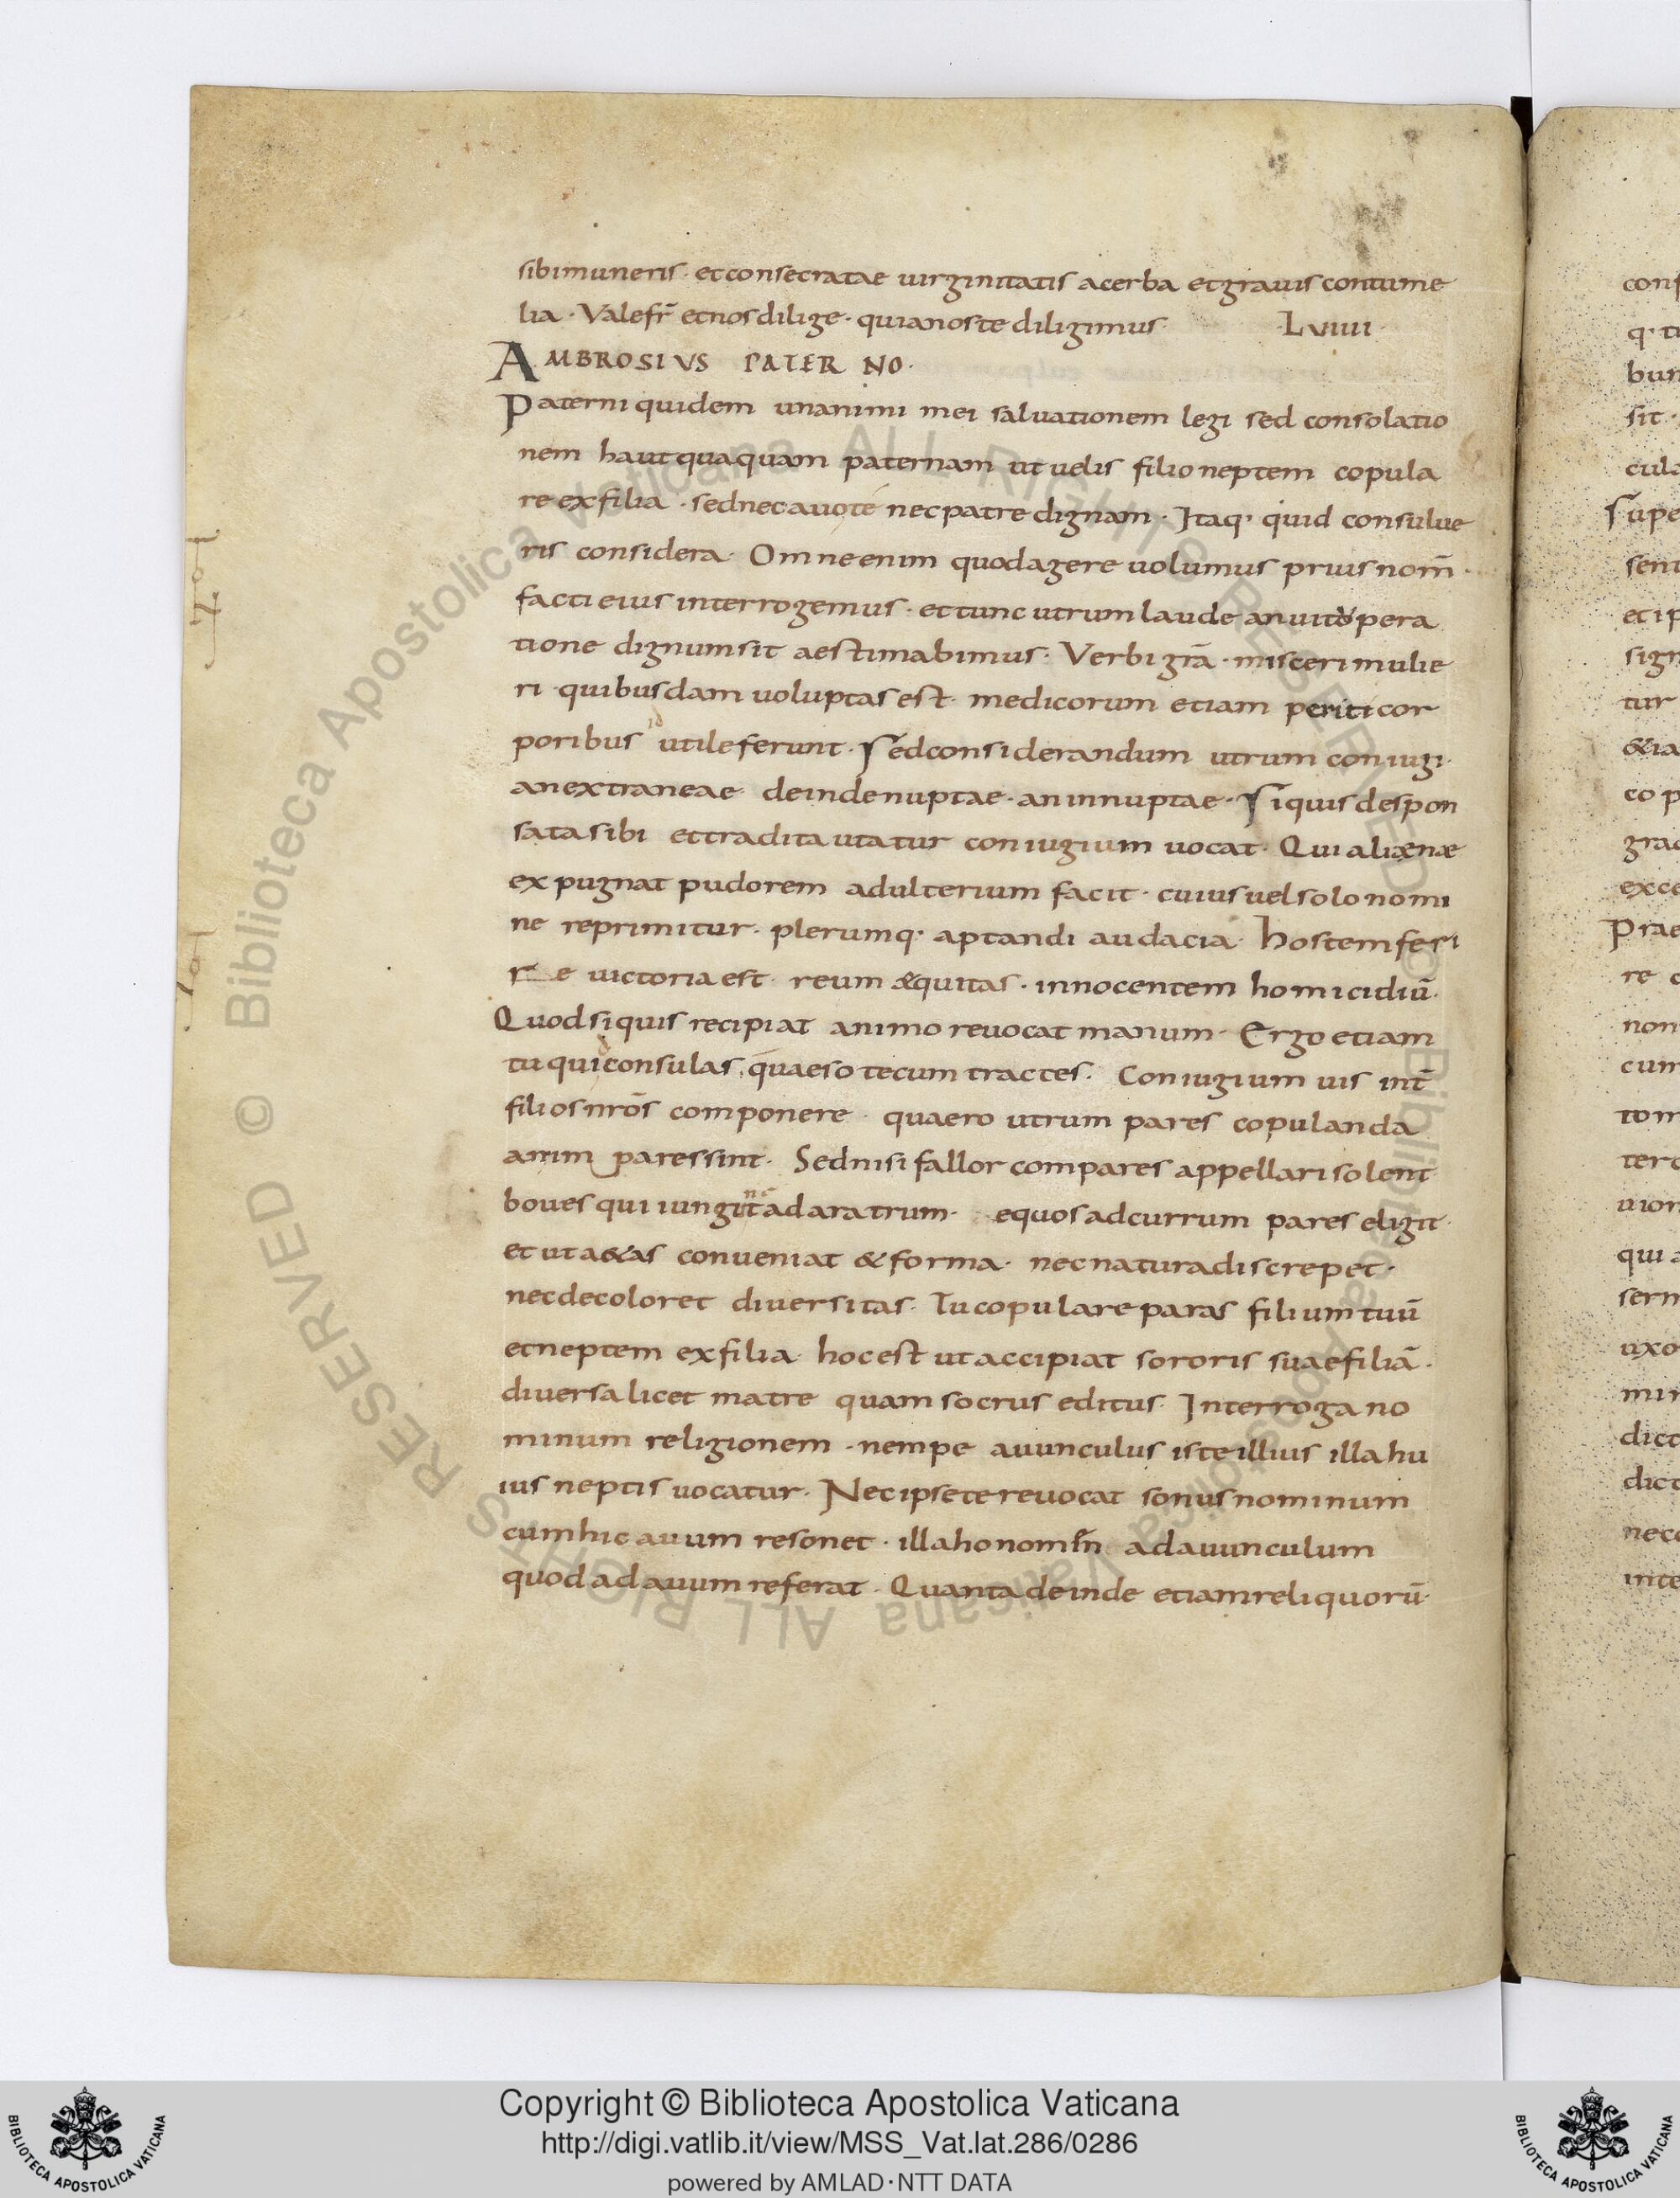 sibi muneris · et consecratae uirginitatis acerba et grauis contume
lia · Vale fr̄ et nos dilige · quia nos te diligimus · LVIIII ·
AMBROSIVS PATERNO ·
Paterni quidem unanimi mei saluationem legi sed consolatio
nem haut quaquam paternam ut uelis filio neptem copula
re ex filia · sed nec auo te nec patre dignam · Itaq· quid consulue
ris considera · Omne enim quod agere uolumus prius nom̄ ·
facti eius interrogemus · et tunc utrum laude an uitopera
tione dignum sit aestimabimus · Verbi gr̄a · misceri mulie
ri quibusdam uoluptas est · medicorum etiam periti cor
poribus id utile ferunt · Sed considerandum utrum coniugi ·
an extraneae · deinde nuptae · an innuptae · Si quis despon
sata sibi et tradita utatur coniugium uocat · Qui alienae
expugnat pudorem adulterium facit · cuius uel solo nomi
ne reprimitur · plerumq· aptandi audacia · hostem feri
re uictoria est · reum aequitas · innocentem homicidiū ·
Quod si quis recipiat animo reuocat manum · Ergo etiam
tu quid consulas quaeso tecum tractes · Coniugium uis int̄
filios nr̄os componere · quaero utrum pares copulanda
an im pares sint · Sed nisi fallor compares appellari solent
boues qui iungunt̄ ad aratrum · equos ad currum pares eligit ·
et ut a&as conueniat & forma · nec natura discrepet ·
nec decoloret diuersitas · Tu copulare paras filium tuū
et neptem ex filia · hoc est ut accipiat sororis suae filiā ·
diuersa licet matre quam socrus editus · Interroga no
minum religionem · nempe auunculus iste illius illa hu
ius neptis uocatur · Nec ipse te reuocat sonus nominum
cum hic auum resonet · illa ho nomen ad auunculum
quod ad auum referat · Quanta deinde etiam reliquorū ·
cons
q· t
bun
sit ·
cula
Supe
sent
et ip
sign
tur
&ia
co p
grac
exce
Prae
re c
non
cum
tom
terc
uion
qui a
serm
uxo
min
dict
dict
nec
inte
© Biblioteca Apostolica Vaticana ALL RIGHTS RESERVED
© Biblioteca Apostolica Vaticana ALL RIGHTS RESERVED
Copyright © Biblioteca Apostolica Vaticana
http://digi.vatlib.it/view/MSS_Vat.lat.286/0286
powered by AMLAD·NTT DATA
BIBLIOTECA APOSTOLICA VATICANA
BIBLIOTECA APOSTOLICA VATICANA